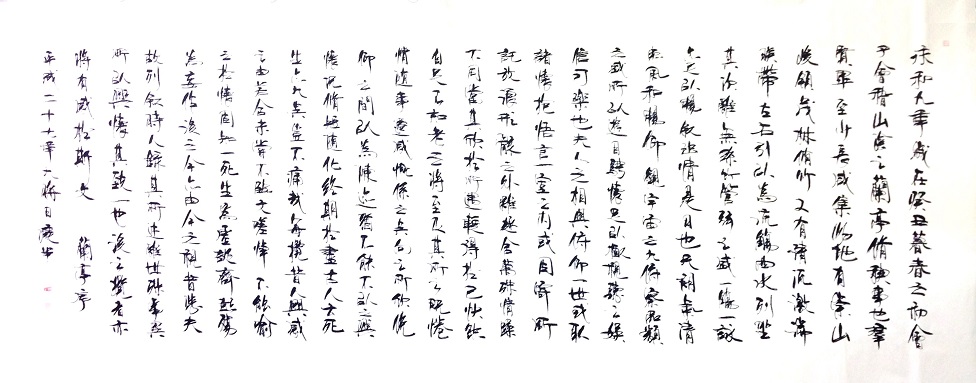 永和九年歲在癸丑暮春之初會
于會稽山陰之蘭亭脩禊事也羣
賢畢至少長咸集此地有崇山
峻領茂林脩竹又有清流激湍
暎帶左右引以為流觴曲水列坐
其次雖無絲竹管弦之盛一觴一詠
亦足以暢敘幽情是日也天朗氣清
惠風和暢仰觀宇宙之大俯察品類
之盛所以遊目騁懷足以極視聽之娛
信可樂也夫人之相與俯仰一世或取
諸懷抱悟言一室之內或因寄所
託放浪形骸之外雖趣舍萬殊靜躁
不同當其欣於所遇輕得於己快然
自足不知老之將至及其所之既惓
情隨事遷感慨係之矣向之所欣俛
仰之間以為陳迹猶不能不以之興
懷況脩短隨化終期於盡古人云死
生亦大矣豈不痛哉每攬昔人興感
之由若合未嘗不臨文嗟悼不能喻
之於懷固知一死生為虛誕齊彭殤
為妄作後之今亦由今之視昔悲夫
故列敘時人錄其所述雖世殊事異
所以興懷其致一也後之覽者亦
將有感於斯文 蘭亭序
平成二十年日